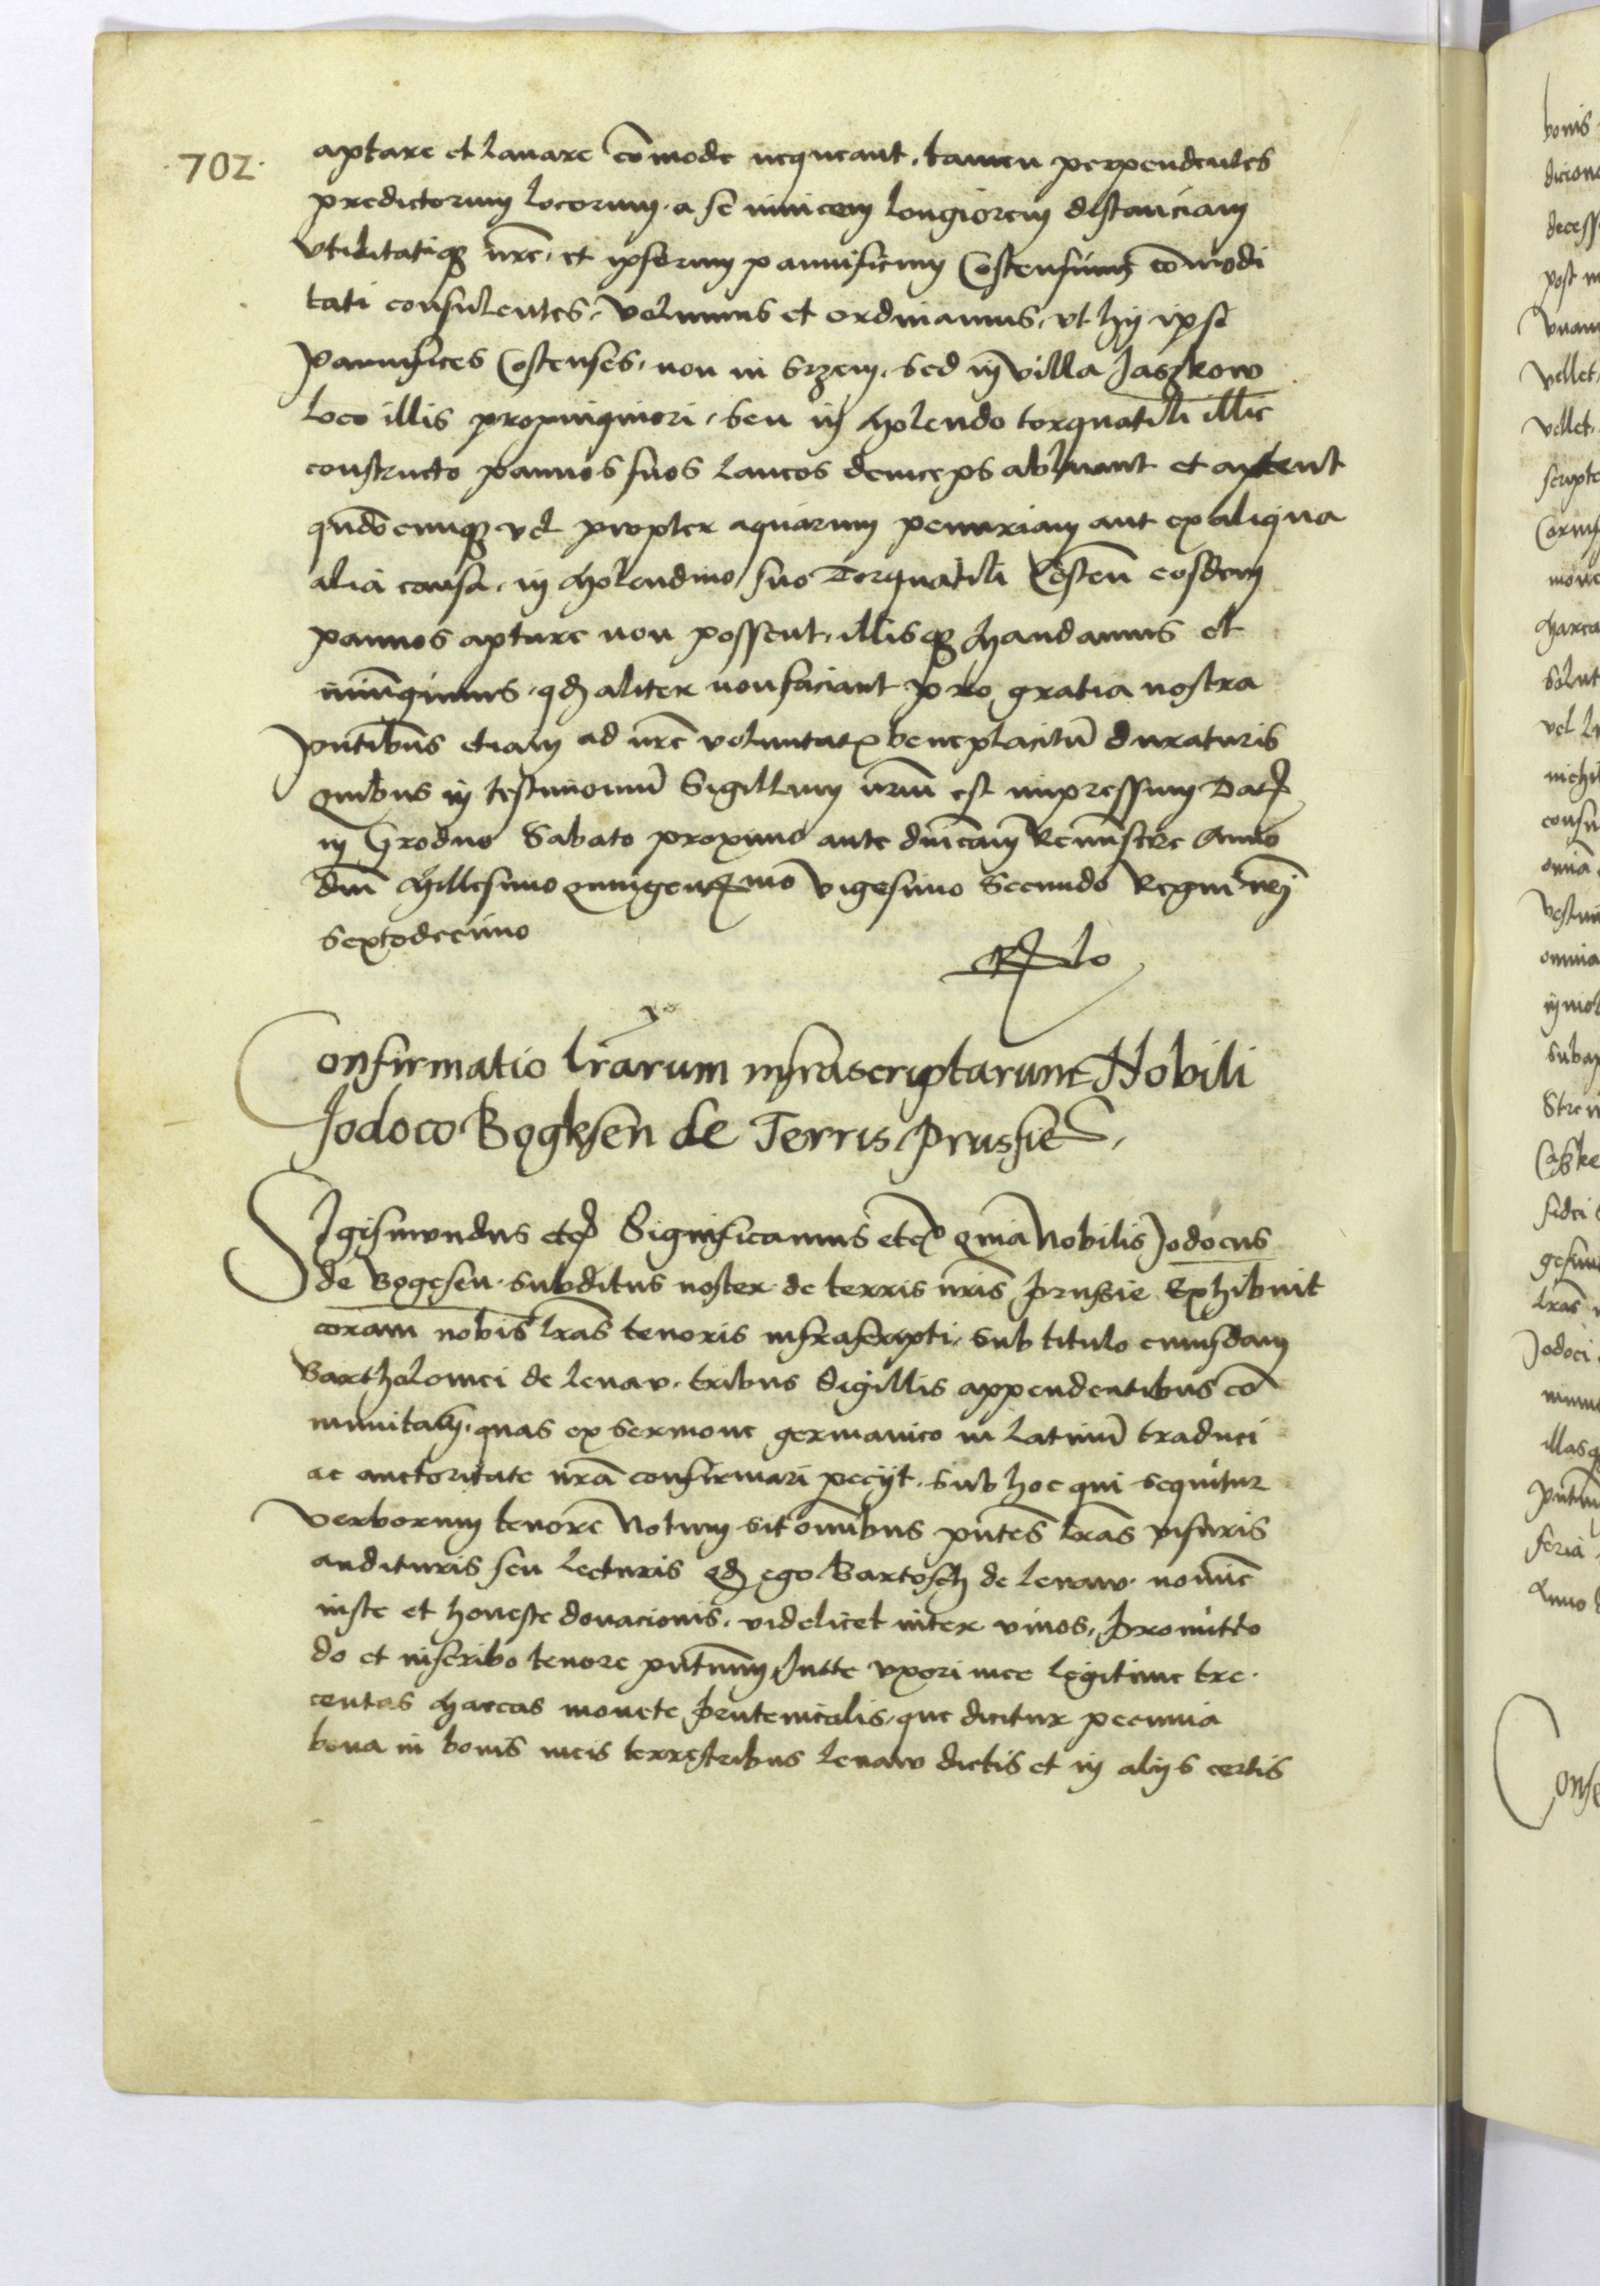 702
aptare et lavare com̄ode nequeant, tamen perpendentes
predictorum locorum a se invicem longiorem distanciam
utilitatiq3 nr̄e, et ipsorum pannificum Costensium com̄odi
tati consulentes, volumus et ordinamus, ut hij ipsi
pannifices Costenses, non in Srzem, sed in villa Jaszkow
loco illis propinquiori, seu in Molendo torquatili illic
constructo pannos suos laneos deinceps abluant et aptent
qn̄docunq3 vel propter aquarum penuriam aut ex aliqua
alia causa, in Molendino suo Torquatili Costen̄ eosdem
pannos aptare non possent, illisq3 Mandamus et
iniūgimus, qd aliter non faciant pro gratia nostra
pn̄tibus etiam ad nr̄e voluntatis beneplacitū duraturis
Quibus in testimoniū Sigillum nr̄um est impressum Dat
in Grodno Sabato proximo ante dn̄icam Reminiscere Anno
dn̄i Millesimo quingentesimo vigesimo Secundo Regni nr̄i
septodecimo
Confirmatio lr̄arum infrascriptarum Nobili
Jodoco Bogksen de Terris Prussie
Sigismundus etc Significamus etc quia Nobilis Jodocus
de Bogesen subditus noster de terris nr̄is Prussie Exhibuit
coram nobis lr̄as tenoris infrascripti, sub titulo cuiusdam
Bartholomei de Lenav, tribus Sigillis appendentibus co
mmunitas, quas ex sermone germanico in Latinū traduci
ac auctoritate nr̄a confirmari peciit, sub hoc qui sequitur
verborum tenore Notum sit om̄ibus pn̄tes lr̄as visuris
audituris seu lecturis qd ego Bartosch de Lenaw nomine
iuste et honeste donacionis, videlicet inter vivos, Promitto
do et inscribo tenore pn̄tium Jutte uxori mee legitime tre
centas Marcas monete prutenicalis, que dicitur pecunia
bona in bonis meis terrestribus Lenaw dictis et in aliis certis